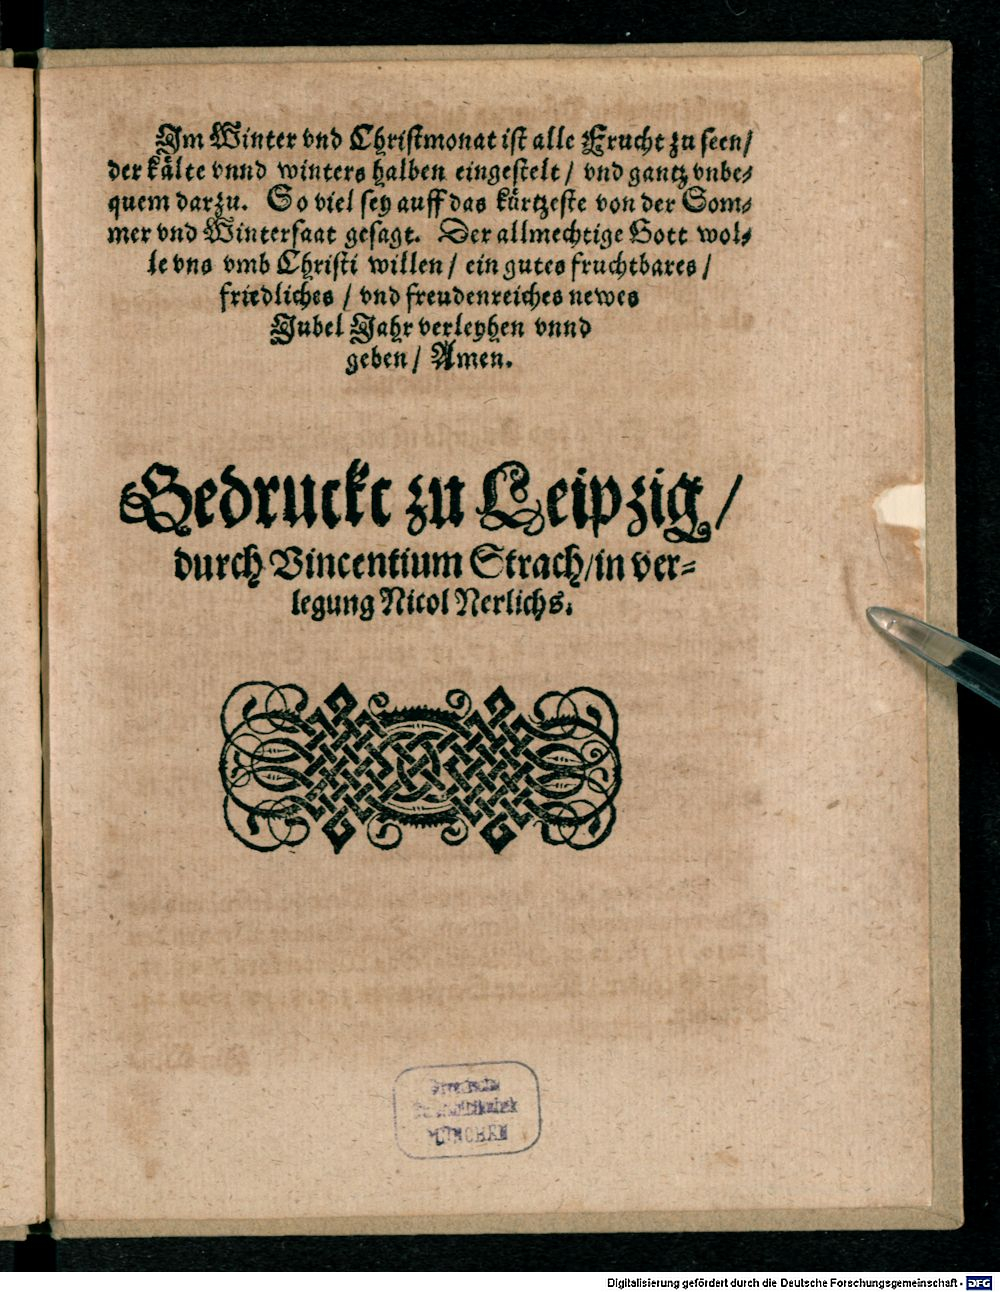 Im Winter vnd Christmonat ist alle Frucht zu seen/
der kålte vnnd winters halben eingestelt / vnd gantz vnbe⸗
quem darzu. So viel sey auff das kürtzeste von der Som⸗
mer vnd Wintersaat gesagt. Der allmechtige Gott wol⸗
le vns vmb Christi willen / ein gutes fruchtbares /
friedliches / vnd freudenreiches newes
Jubel Jahr verleyhen vnnd
geben / Amen.
Gedruckt zu Leipzig /
durch Vincentium Strach/in ver⸗
legung Nicol Nerlichs.
Bayerische
Staatsbibliothek
MÜNCHEN
Digitalisierung gefördert durch die Deutsche Forschungsgemeinschaft - DFG